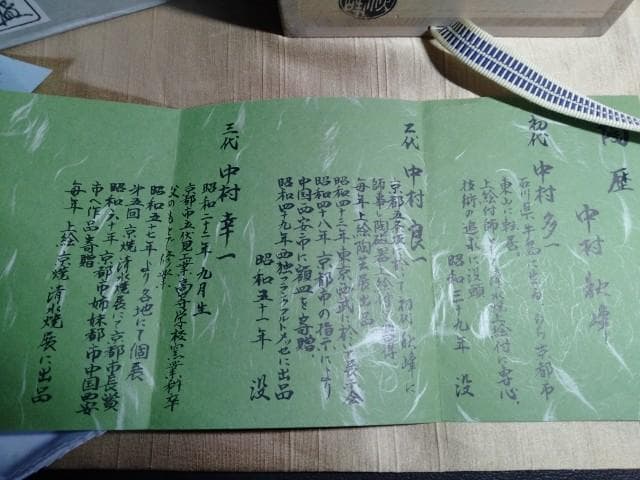 陶歴
中村秋峰
初代 中村多一
石川県
東山に転居
上絵付師として清水焼上絵付に専心、
技術の追求に没頭
昭和三十九年 没
二代 中村良一
京都五条坂に於て初代秋峰に
師事し陶磁器上絵付を習得
毎年上絵陶芸展出品
昭和四十三年東京西武に於て個展
昭和四十八年京都市の指示により
中国西安市に額皿を寄贈
昭和四十九年西独フランクフルトメッセに出品
昭和五十一年 没
三代 中村幸一
昭和二十二年九月生
京都市立伏見工業高等学校窯業科卒
父のもとで修業
昭和五七年より各地にて個展
第五回京焼清水焼展にて京都市長賞
昭和六十年京都市姉妹都市中国西安
市へ作品寄贈
毎年 上絵、京焼 清水焼展に出品